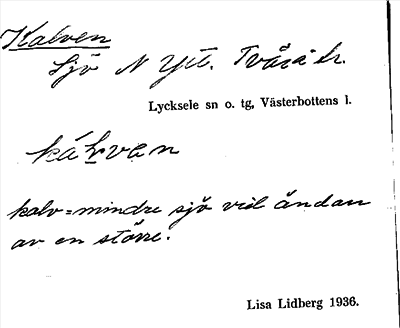 Kalven
Sjö N Ytt. Tvärå tr.
Lycksele sn o. tg, Västerbottens l.
káḷvan
kalv = mindre sjö vid ändan
av en större.
Lisa Lidberg 1936.